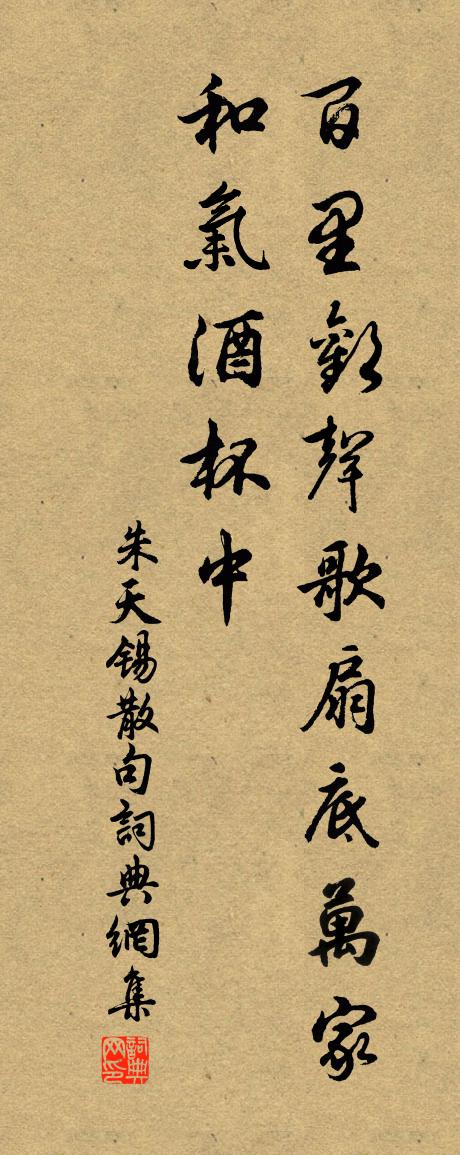 百里歡聲歌扇底萬家
和氣酒杯中
朱天锡散句詞典網集
詞典
网印